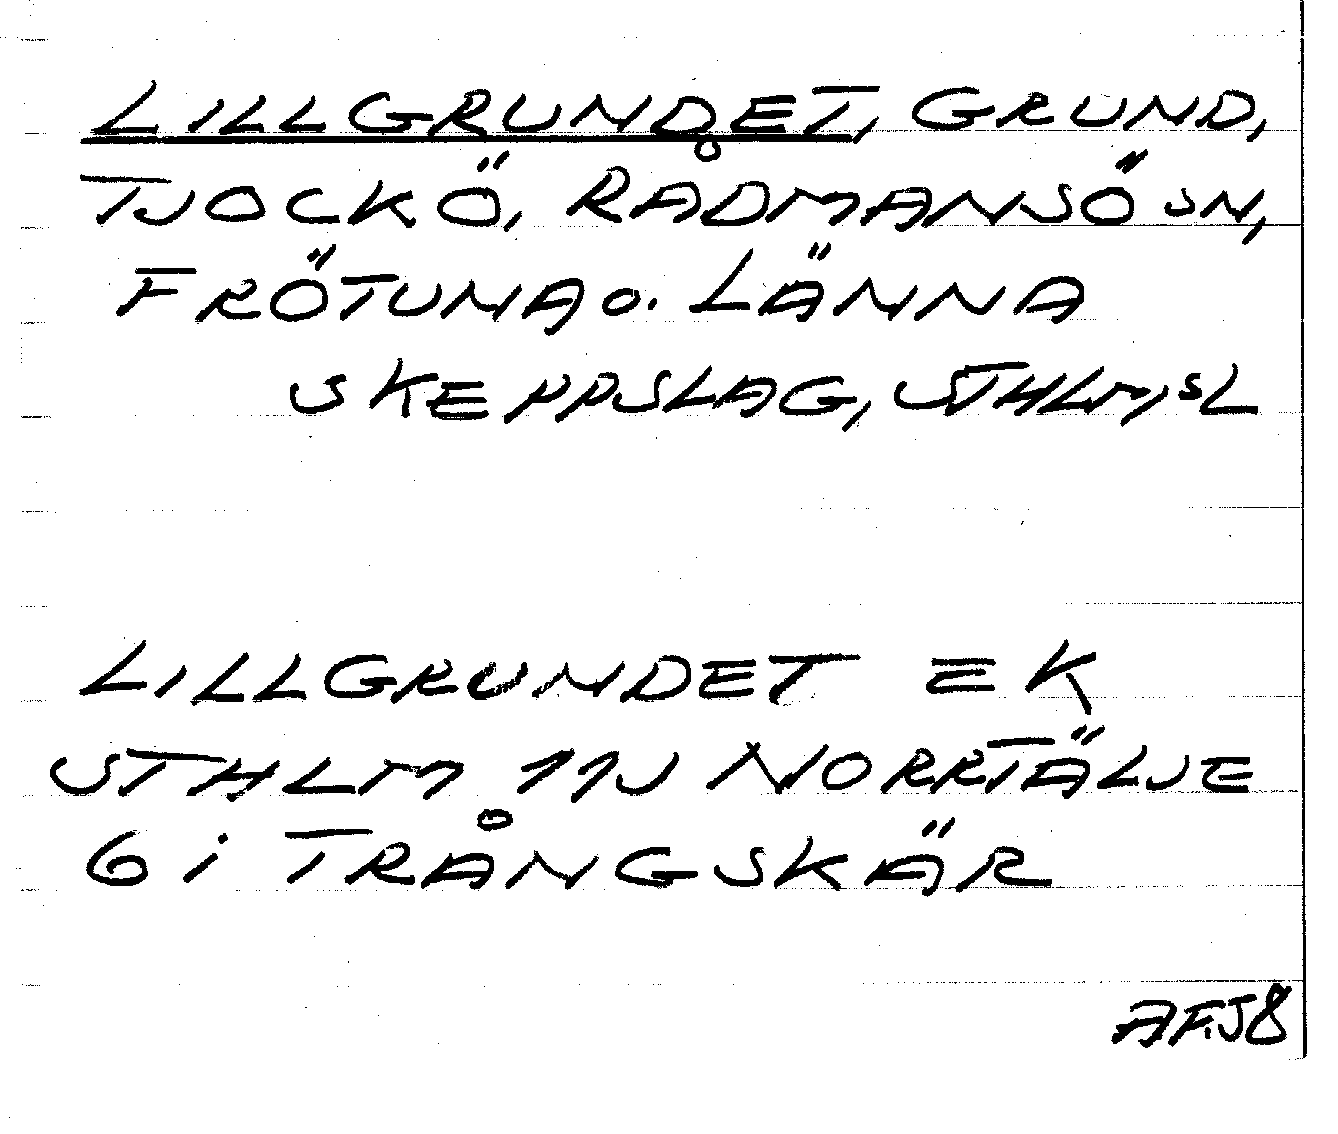 LILLGRUNDET, GRUND,
TJOCKÖ, RÅDMANSÖ SN,
FRÖTUNA o. LÄNNA
SKEPPSLAG, STHLM,SL
LILLGRUNDET EK
STHLM 11J NORRTÄLJE
6 i TRÅNGSKÄR